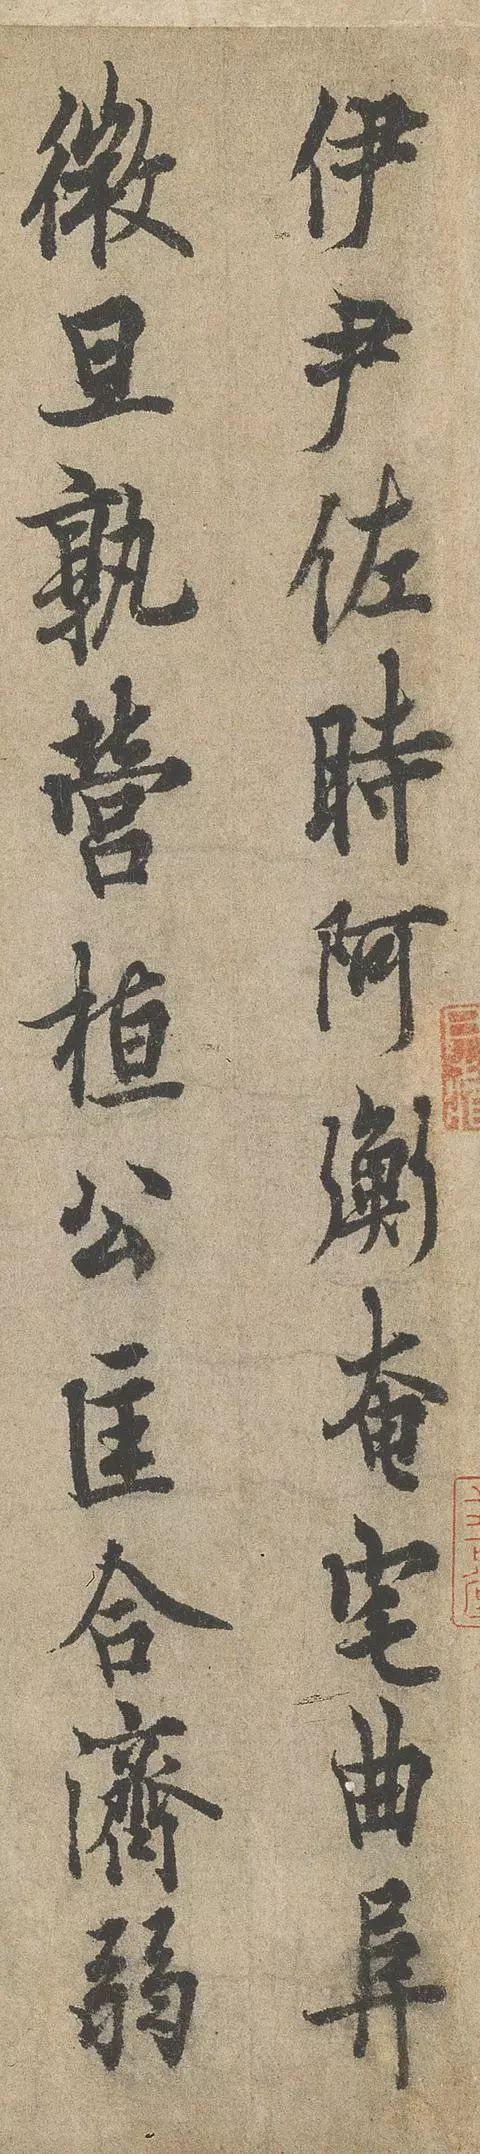 伊尹佐時阿衡奄宅曲阜
微旦孰營桓公匡合濟弱